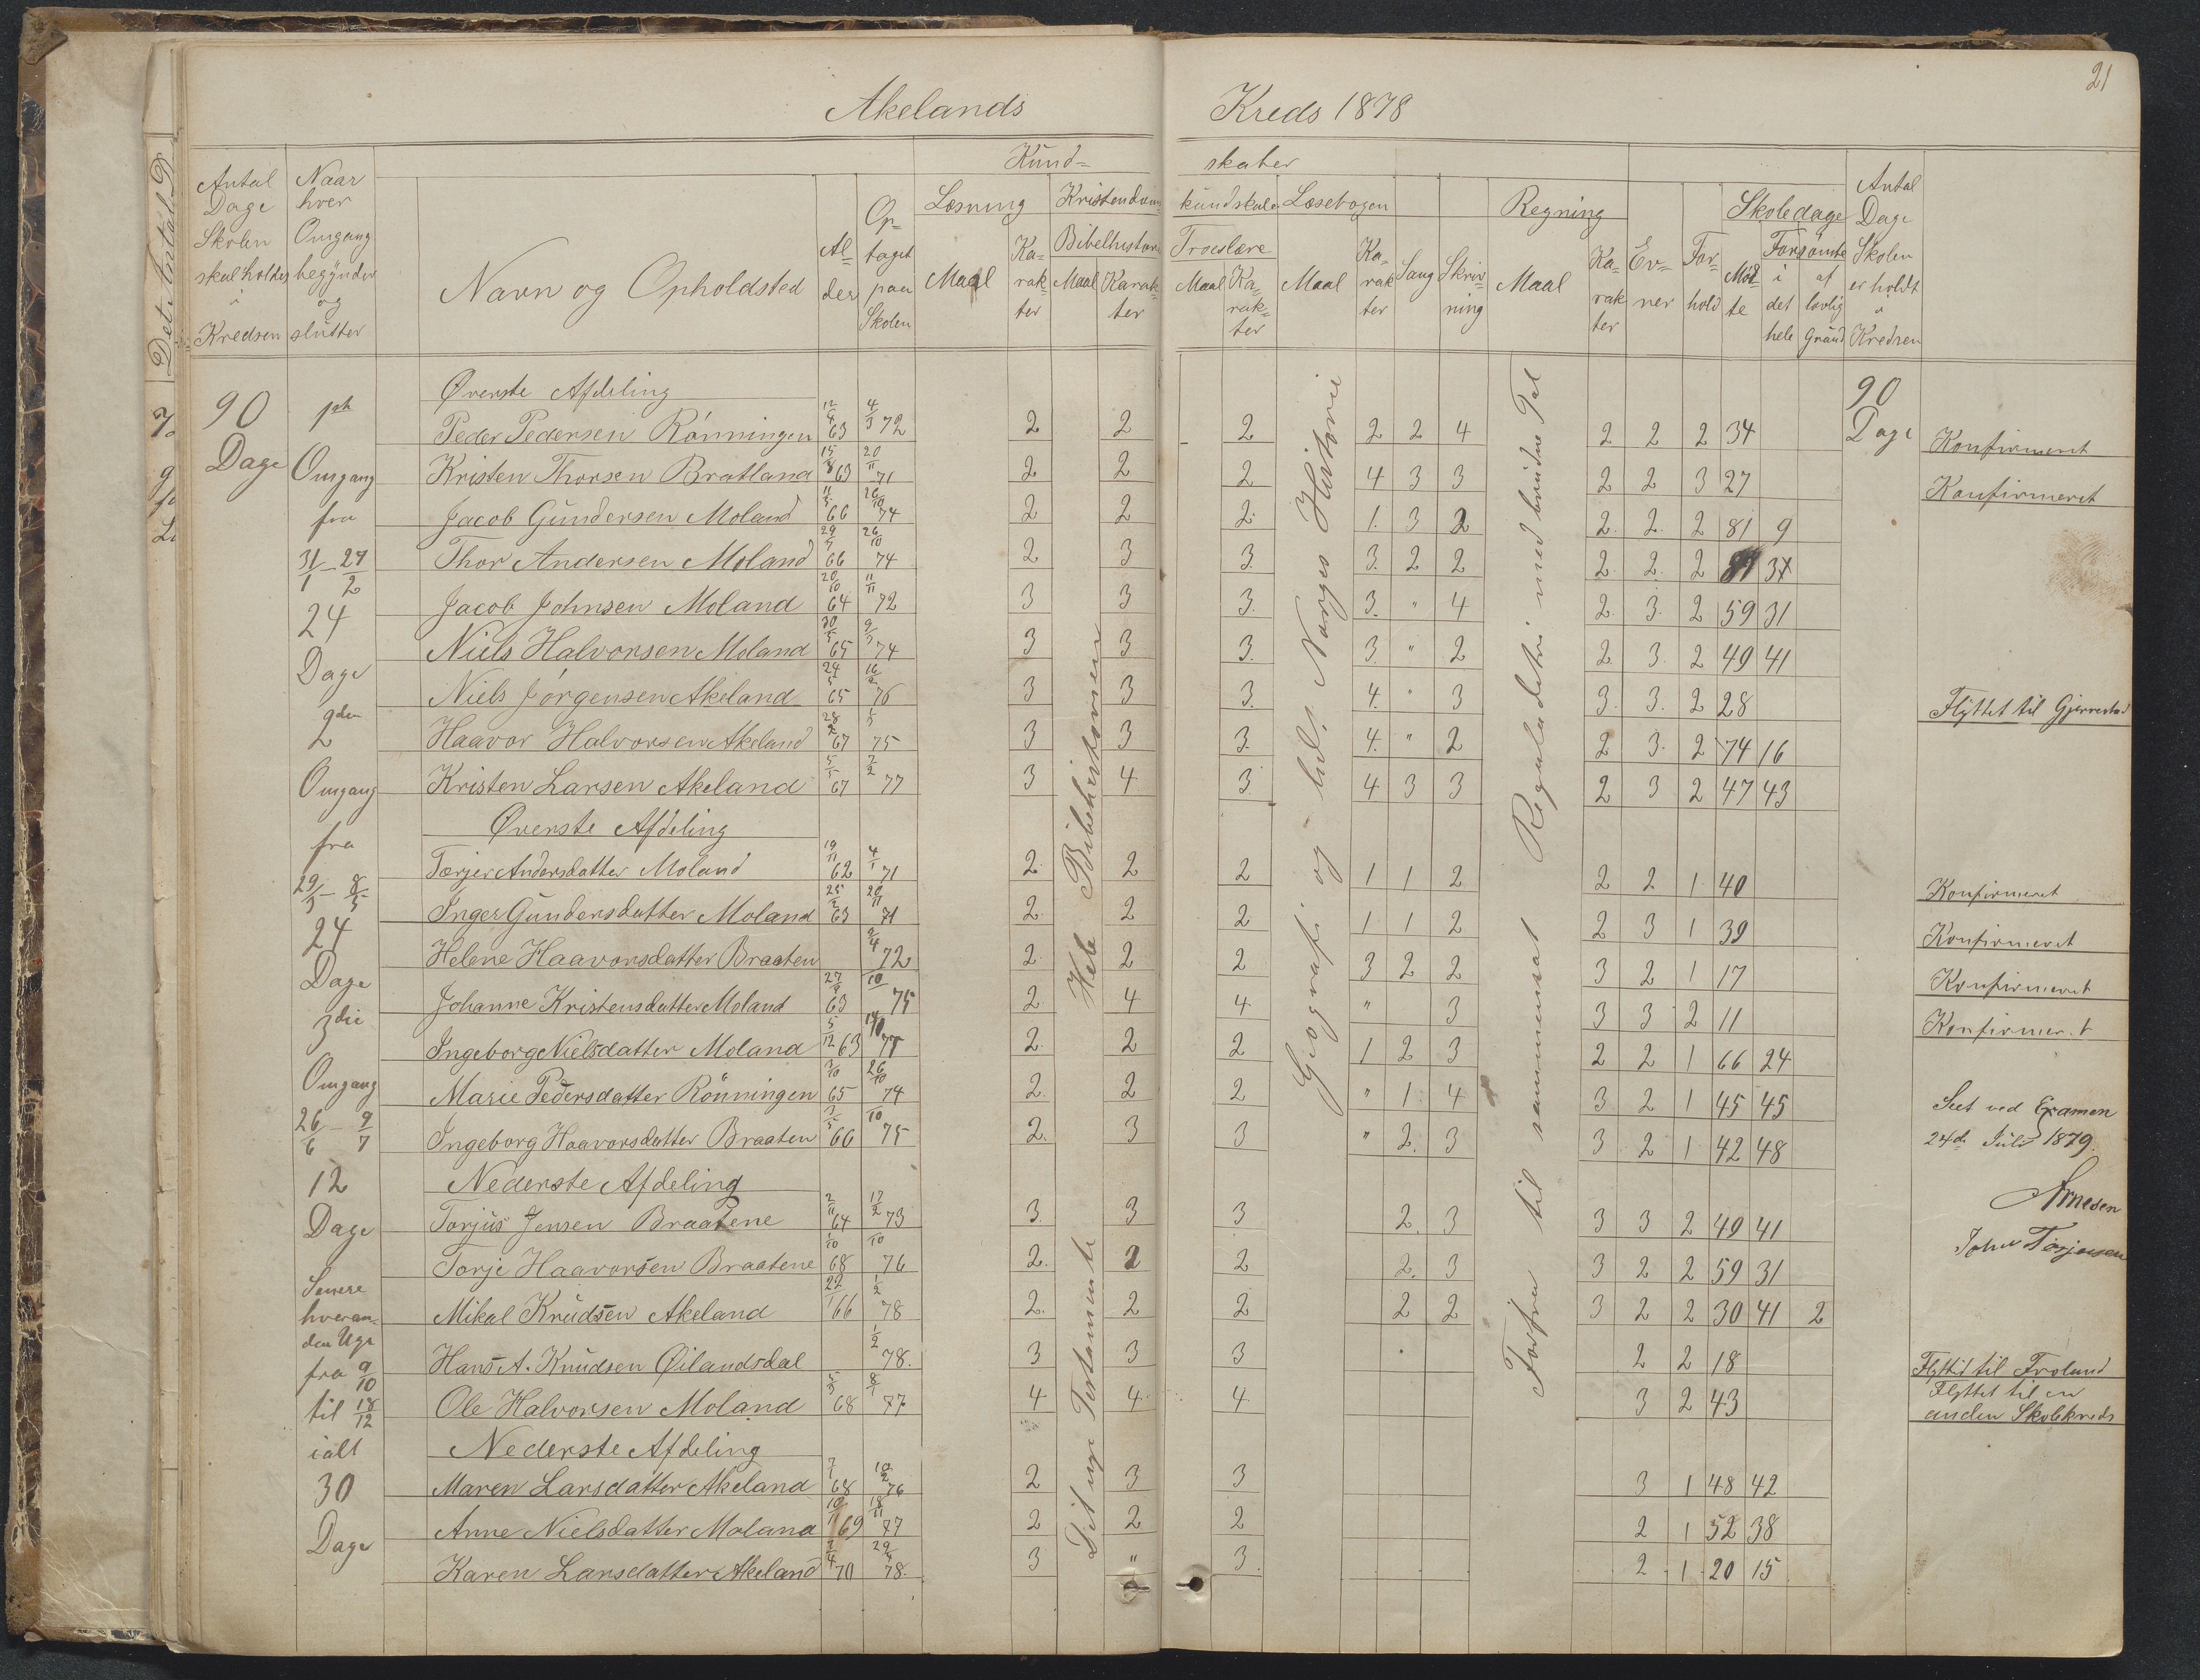 21
Akelands Kreds 1878
Antal Dage Skolen skal holdes i Kredsen
Naar hver Omgang begynder og slutter
Navn og Opholdsted
Alder
Optaget paa Skolen
Kundskaber
Læsning
Maal
Karakter
Kristendomskundskab
Bibelhistorie
Maal Karakter
Troeslære
Maal Karakter
Læsebogen
Maal
Karakter
Sang
Skrivning
Regning
Maal
Karakter
Evner
Forhold
Skoledage
Mødte
Forsømte
i det hele
af lovlig Grund
Antal Dage Skolen er holdt i Kredsen
90 Dage
1ste Omgang fra 31/1 - 27/2 24 Dage
2den Omgang fra 29/3 - 8/5 24 Dage
3die Omgang 26/6 - 9/7 12 Dage
Senere hveranden Uge fra 9/10 til 18/12 ialt 30 Dage
Det nye Testamente Hele Bibelhistorien
Geografi og Norges Historie
Forfra til sammensat Reguladetri med brudne Tal
90 Dage
Øverste Afdeling
Peder Pedersen Rönningen 63 4/3 72 2 2 2 2 2 4 2 2 2 34 Konfirmeret
Kristen Thorsen Bratland 15/8 63 20/11 71 2 2 2 4 3 3 2 2 3 27 Konfirmeret
Jacob Gundersen Moland 66 26/10 74 2 2 2 1 3 2 2 2 2 81 9
Thor Andersen Moland 66 26/10 74 2 3 3 3 2 2 2 2 2
Jacob Johnsen Moland 20/10 64 11/11 72 3 3 3 3 " 4 2 3 2 59 31
Niels Halvorsen Moland 65 74 3 3 3 3 " 2 2 3 2 49 41
Niels Jörgensen Akeland 65 76 3 3 3 4 " 3 3 3 2 28 Flyttet til Gjerrestad
Haavor Halvorsen Akeland 67 75 3 3 3 4 " 2 2 3 2 74 16
Kristen Larsen Akeland 67 77 3 4 3 4 3 3 2 3 2 47 43
Øverste Afdeling
Torjer Andersdatter Moland 19/11 62 4/1 71 2 2 2 1 1 2 2 2 1 40 Konfirmeret
Inger Gundersdatter Moland 63 20/11 71 2 2 2 1 1 2 2 3 1 39 Konfirmeret
Helene Haavorsdatter Braaten 72 2 2 2 3 2 2 3 2 1 17 Konfirmeret
Johanne Kristensdatter Moland 63 10 75 2 4 4 " 3 3 3 2 11 Konfirmeret
Ingeborg Nielsdatter Moland 5/12 63 2 2 2 1 2 3 2 2 1 66 24
Marie Pedersdatter Rönningen 65 26/10 74 2 2 2 " 1 4 3 2 1 45 45
Ingeborg Haavorsdatter Braaten 66 10 75 2 3 3 " 2 3 3 2 1 42 48
Nederste Afdeling
Torjus Jensen Braatene 2/11 64 12/2 73 3 3 3 2 3 3 3 2 49 41
Torje Haavorsen Braatene 1/10 68 10 76 2 2 2 2 3 3 2 2 59 31
Mikal Knudsen Akeland 22/1 66 1/2 78 2 2 2 2 2 3 2 2 30 41 2
Hans A. Knudsen Öilandsdal 1/2 78. 3 3 3 2 2 18 Flyttet til Froland
Ole Halvorsen Moland 68 8/1 77 4 4 4 3 2 43 Flyttet til en anden Skolekreds
Nederste Afdeling
Maren Larsdatter Akeland 68 76 2 3 3 3 1 48 42
Anne Nielsdatter Moland 69 18/11 77 2 2 2 2 1 52 38
Karen Larsdatter Akeland 70 78. 3 " 3 2 1 20 15
Seet ved Examen
24de Juli 1879.
Arnesen
John Torjusen